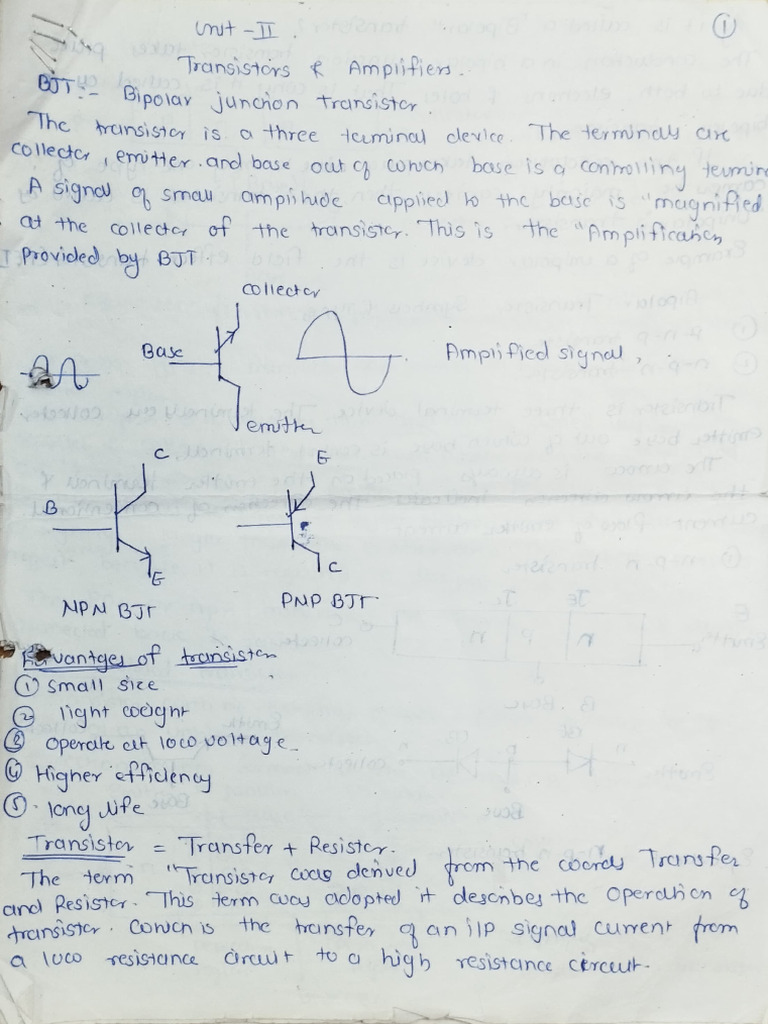 Unit - II. ①
Transistors & Amplifiers.
BJT:- Bipolar junction transistor.
The transistor is a three terminal device. The terminals are
collector, emitter. and base out of which base is a controlling termin
A signal of small amplitude applied to the base is "magnified
at the collector of the transistor. This is the "Amplification,
Provided by BJT.
collector
Base
Amplified signal,
emitter
C
E
B
E
C
NPN BJT
PNP BJT
vantges of transistor
① small size
② light weight
③ operate at low voltage
④ Higher efficiency
⑤ long life
Transistor = Transfer + Resistor.
The term "Transistor was derived from the words Transfer
and Resistor. This term was adopted it describes the Operation of
transistor. which is the transfer of an i/p signal current from
a low resistance circuit to a high resistance circuit.